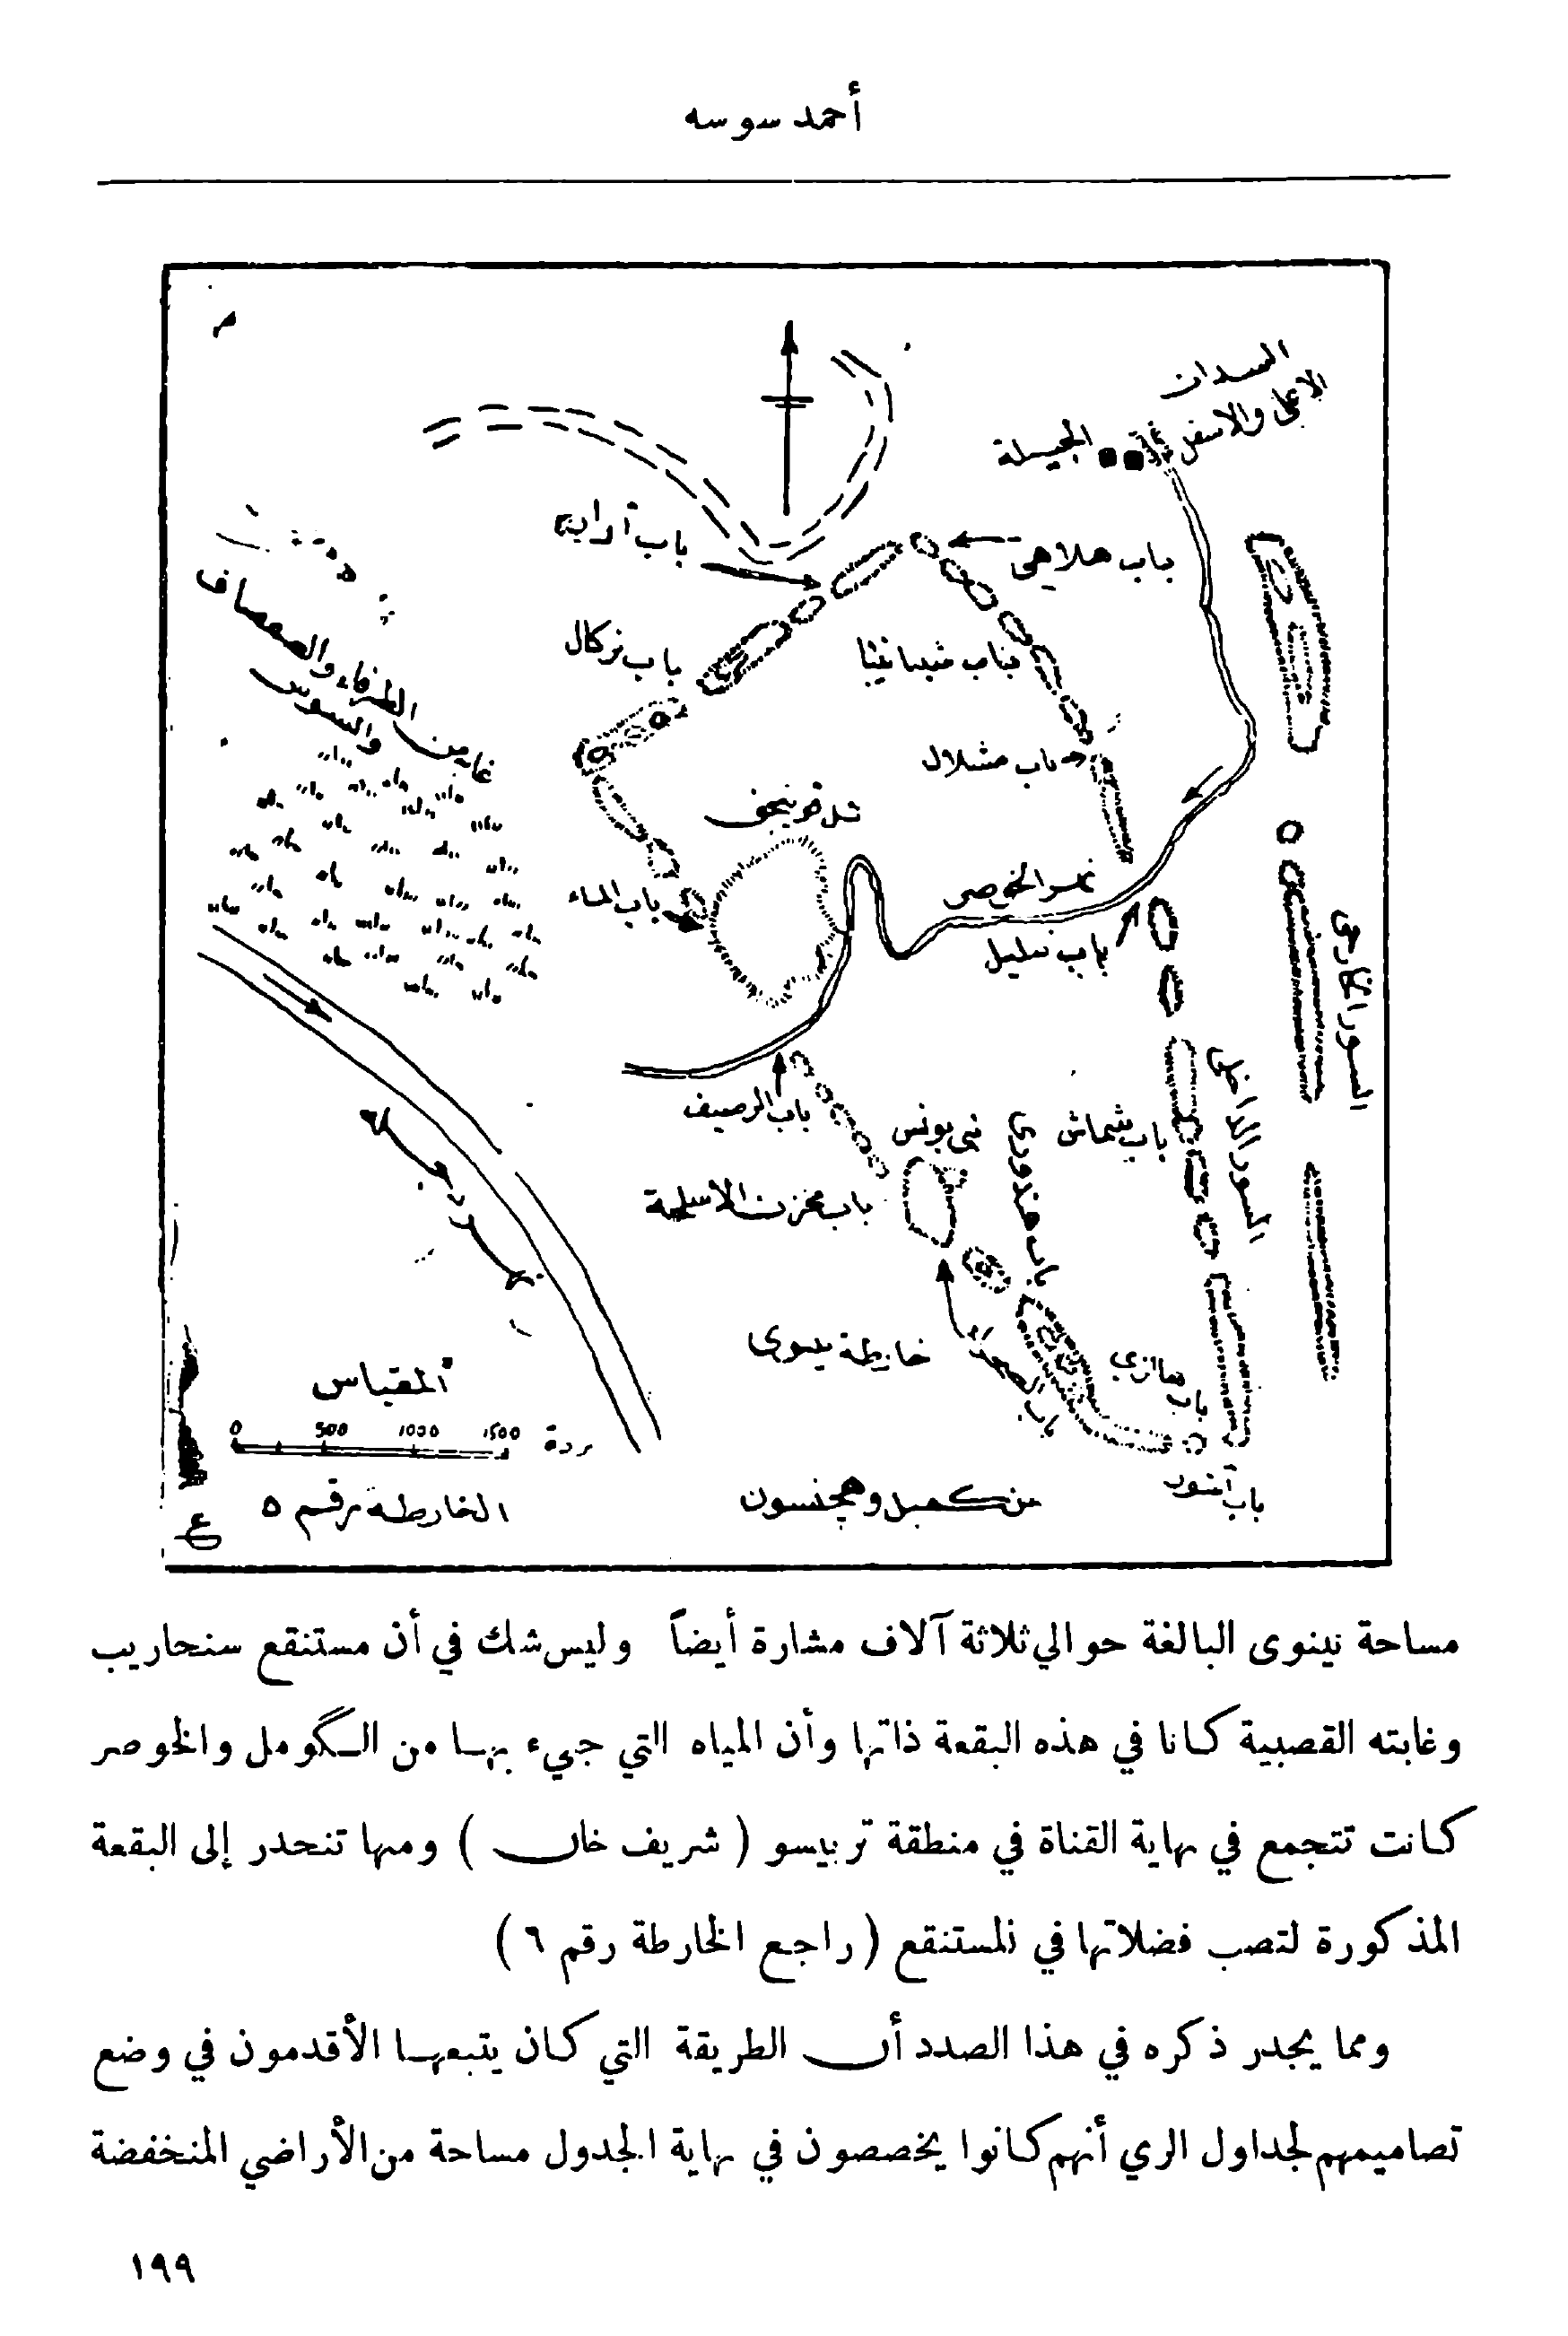 أحمد سوسه
السدان
الاعلى والاسفل
الجيلة
باب هلاهي
باب نركال
باب شيبانيبا
باب مشلال
غابه من الطرفاء والصفصاف
والسوس
تل قوينجق
نهر الخوصر
باب الماء
باب ننليل
السور الخارجي
السور الداخلي
باب الرصيف
نبي يونس
باب شماش
باب هندوري
باب مخزن الاسلحة
نهر دجلة
خارطة نينوى
باب الصحراء
باب هالزي
باب آشور
المقياس
0 500 1000 1500 يردة
الخارطة رقم ٥
من كمبل وهچنسون
مساحة نينوى البالغة حوالي ثلاثة آلاف مشارة أيضاً وليس شك في أن مستنقع سنحاريب
وغابته القصبية كانا في هذه البقعة ذاتها وأن المياه التي جيء بهـا من الـگومل والخوصر
كانت تتجمع في نهاية القناة في منطقة تربيسو ( شريف خان ) ومنها تنحدر إلى البقعة
المذكورة لتصب فضلاتها في المستنقع ( راجع الخارطة رقم ٦ )
ومما يجدر ذكره في هذا الصدد أن الطريقة التي كان يتبعهـا الأقدمون في وضع
تصاميمهم لجداول الري أنهم كانوا يخصصون في نهاية الجدول مساحة من الأراضي المنخفضة
١٩٩